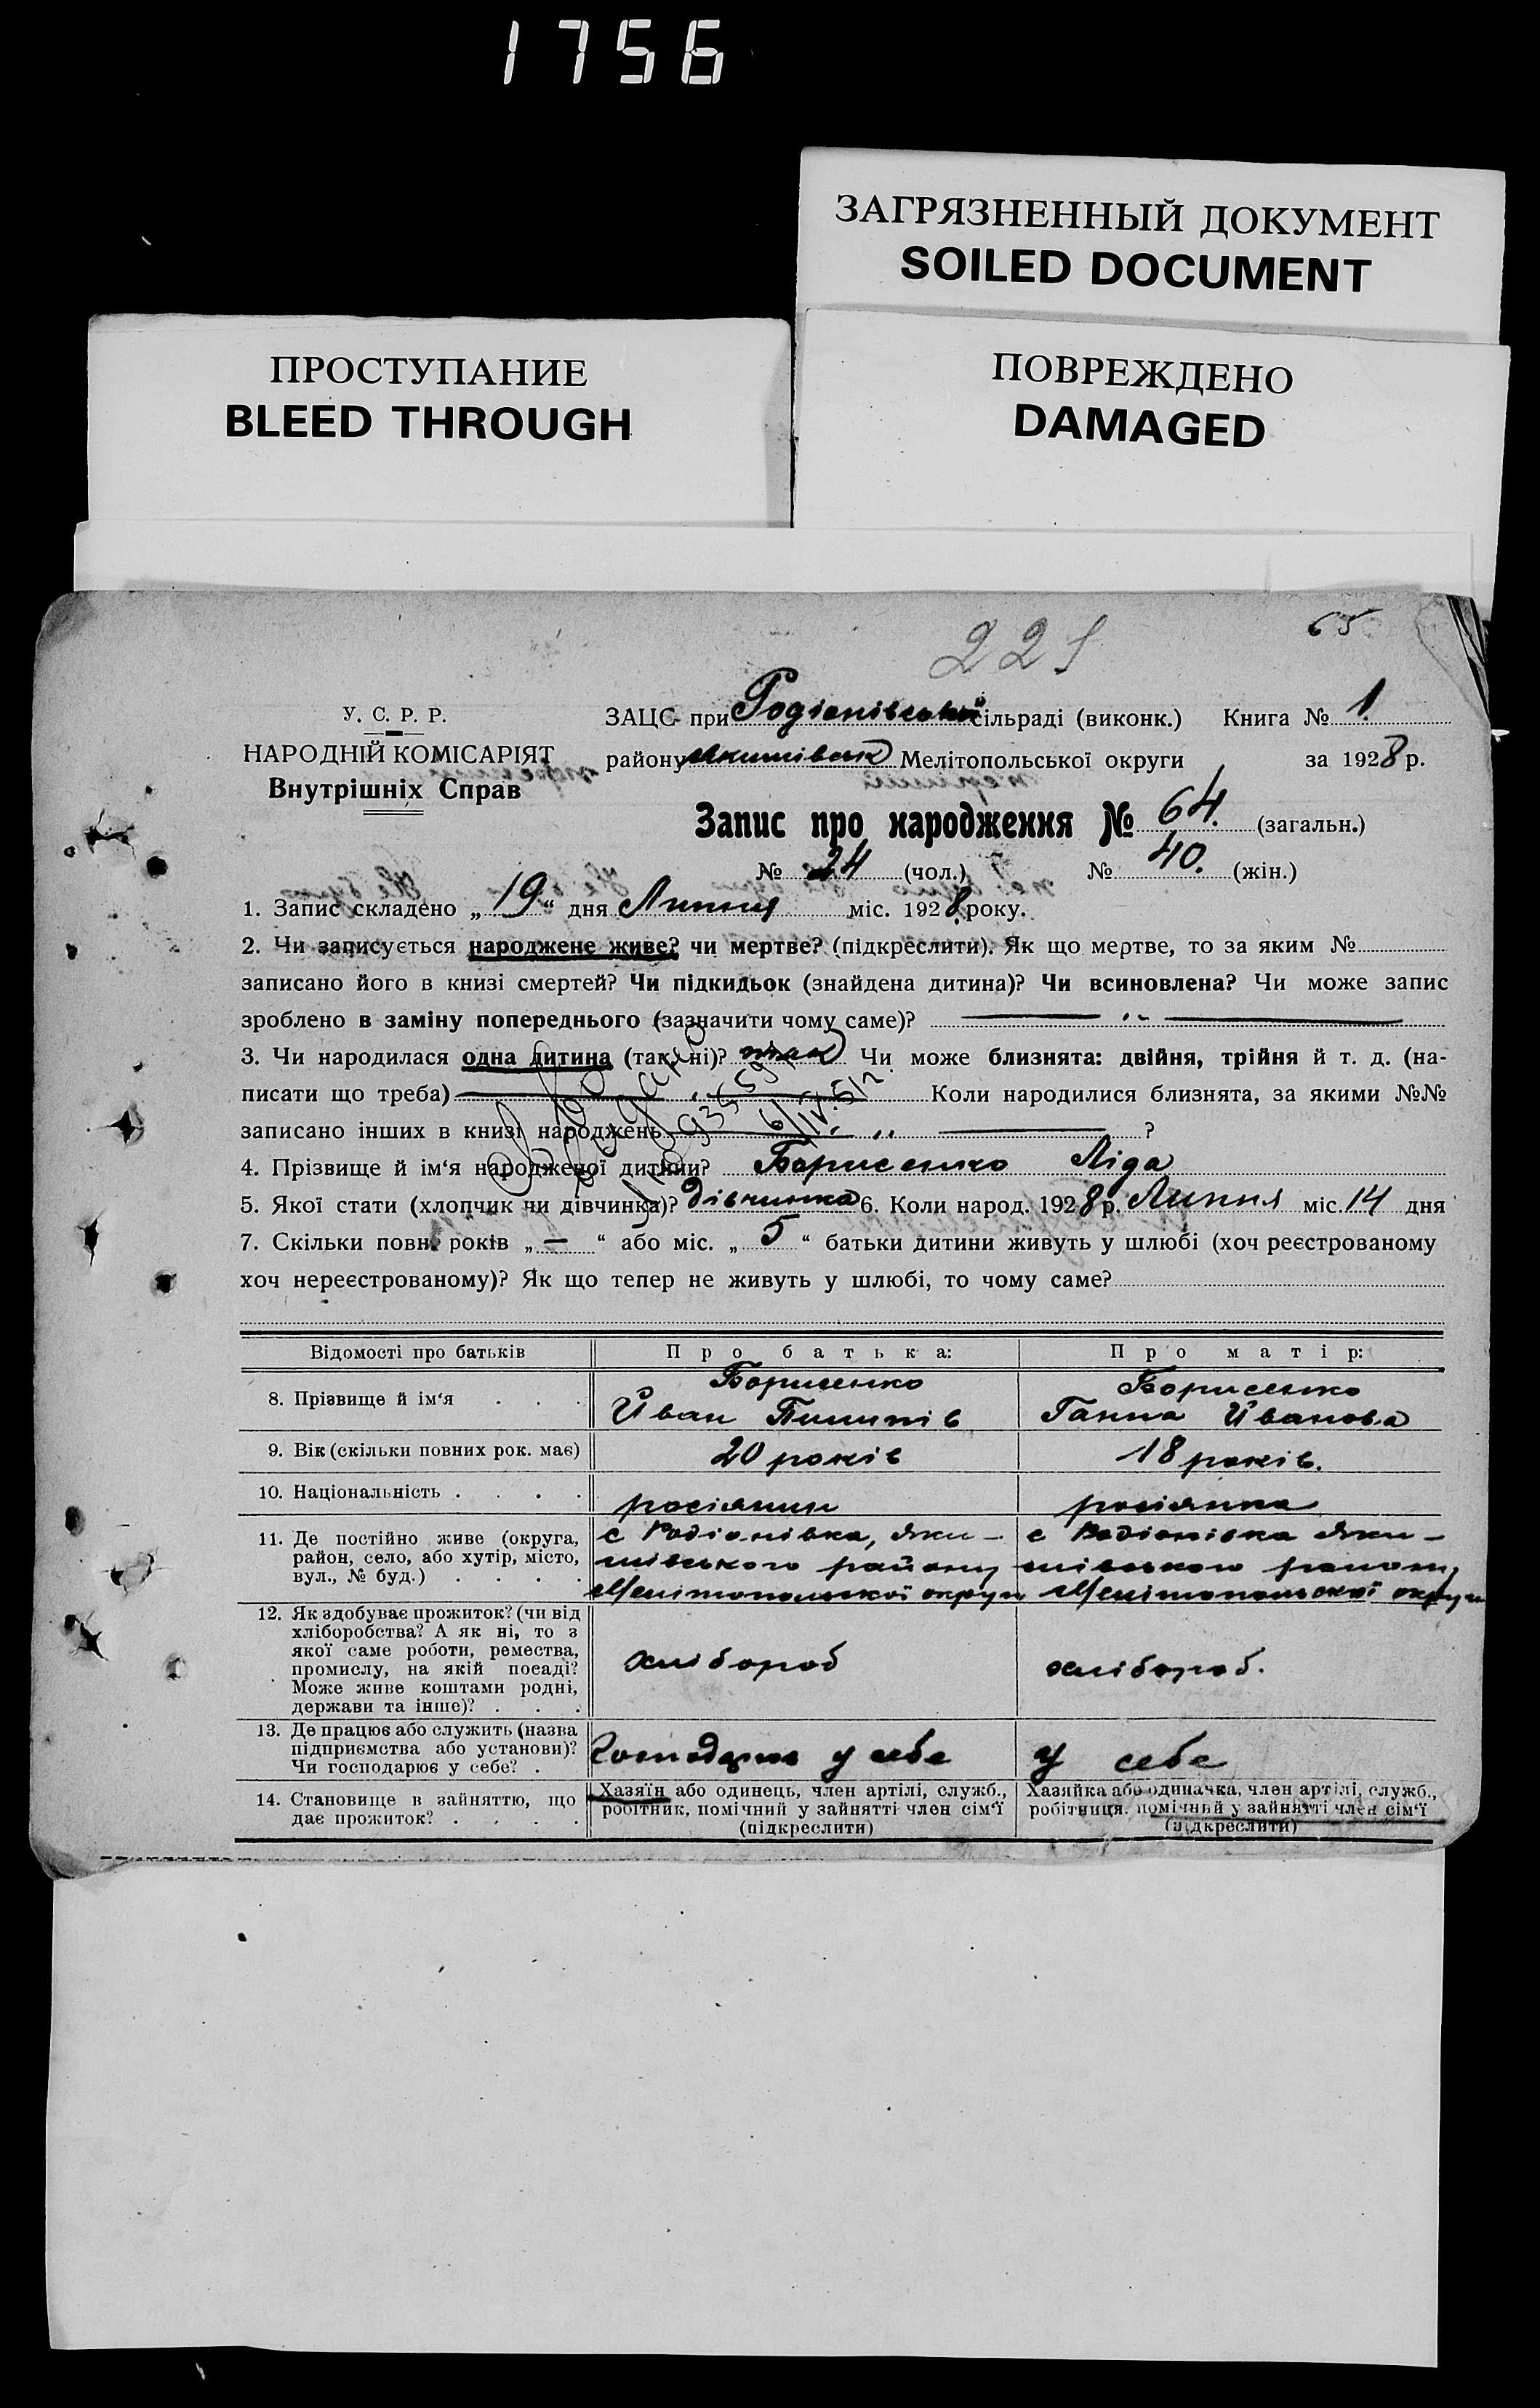 1756
ЗАГРЯЗНЕННЫЙ ДОКУМЕНТ
SOILED DOCUMENT
ПРОСТУПАНИЕ
BLEED THROUGH
ПОВРЕЖДЕНО
DAMAGED
221
65
У. С. Р. Р.
НАРОДНІЙ КОМІСАРІЯТ
Внутрішніх Справ
ЗАЦС при Родіонівській сільраді (виконк.) Книга № 1.
району Якимівськ Мелітопольської округи за 1928 р.
Запис про народження № 64. (загальн.)
№ 24 (чол.) № 40. (жін.)
1. Запис складено „19“ дня Липня міс. 1928 року.
2. Чи записується народжене живе? чи мертве? (підкреслити). Як що мертве, то за яким №
записано його в книзі смертей? Чи підкидьок (знайдена дитина)? Чи всиновлена? Чи може запис
зроблено в заміну попереднього (зазначити чому саме)? — „ —
3. Чи народилася одна дитина (так, ні)? так Чи може близнята: двійня, трійня й т. д. (на-
писати що треба) — „ — Коли народилися близнята, за якими №№
записано інших в книзі народжень — „ — ?
4. Прізвище й ім‘я народженої дитини? Борисенко Ліда
5. Якої стати (хлопчик чи дівчинка)? дівчинка 6. Коли народ. 1928 р. Липня міс. 14 дня
7. Скільки повн. років „ — “ або міс. „ 5 “ батьки дитини живуть у шлюбі (хоч реєстрованому
хоч нереєстрованому)? Як що тепер не живуть у шлюбі, то чому саме?
Відомості про батьків
Про батька:
Про матір:
8. Прізвище й ім‘я . . .
Борисенко
Йван Пилипів
Борисенко
Ганна Йванова
9. Вік (скільки повних рок. має)
20 років
18 років.
10. Національність . . . .
росіянин
росіянка
11. Де постійно живе (округа,
район, село, або хутір, місто,
вул., № буд.) . . . .
с Родіонівка, Яки-
мівського району
Мелітопольської округи
с Родіонівка Яки-
мівського району,
Мелітопольської округи
12. Як здобуває прожиток? (чи від
хліборобства? А як ні, то з
якої саме роботи, ремества,
промислу, на якій посаді?
Може живе коштами родні,
держави та інше)? . . .
хлібороб
хлібороб.
13. Де працює або служить (назва
підприємства або установи)?
Чи господарює у себе? .
у себе
у себе
14. Становище в зайняттю, що
дає прожиток? . . . .
Хазяїн або одинець, член артілі, служб.,
робітник, помічний у зайнятті член сім‘ї
(підкреслити)
Хазяйка або одиначка, член артілі, служб.,
робітниця, помічний у зайнятті член сім‘ї
(підкреслити)